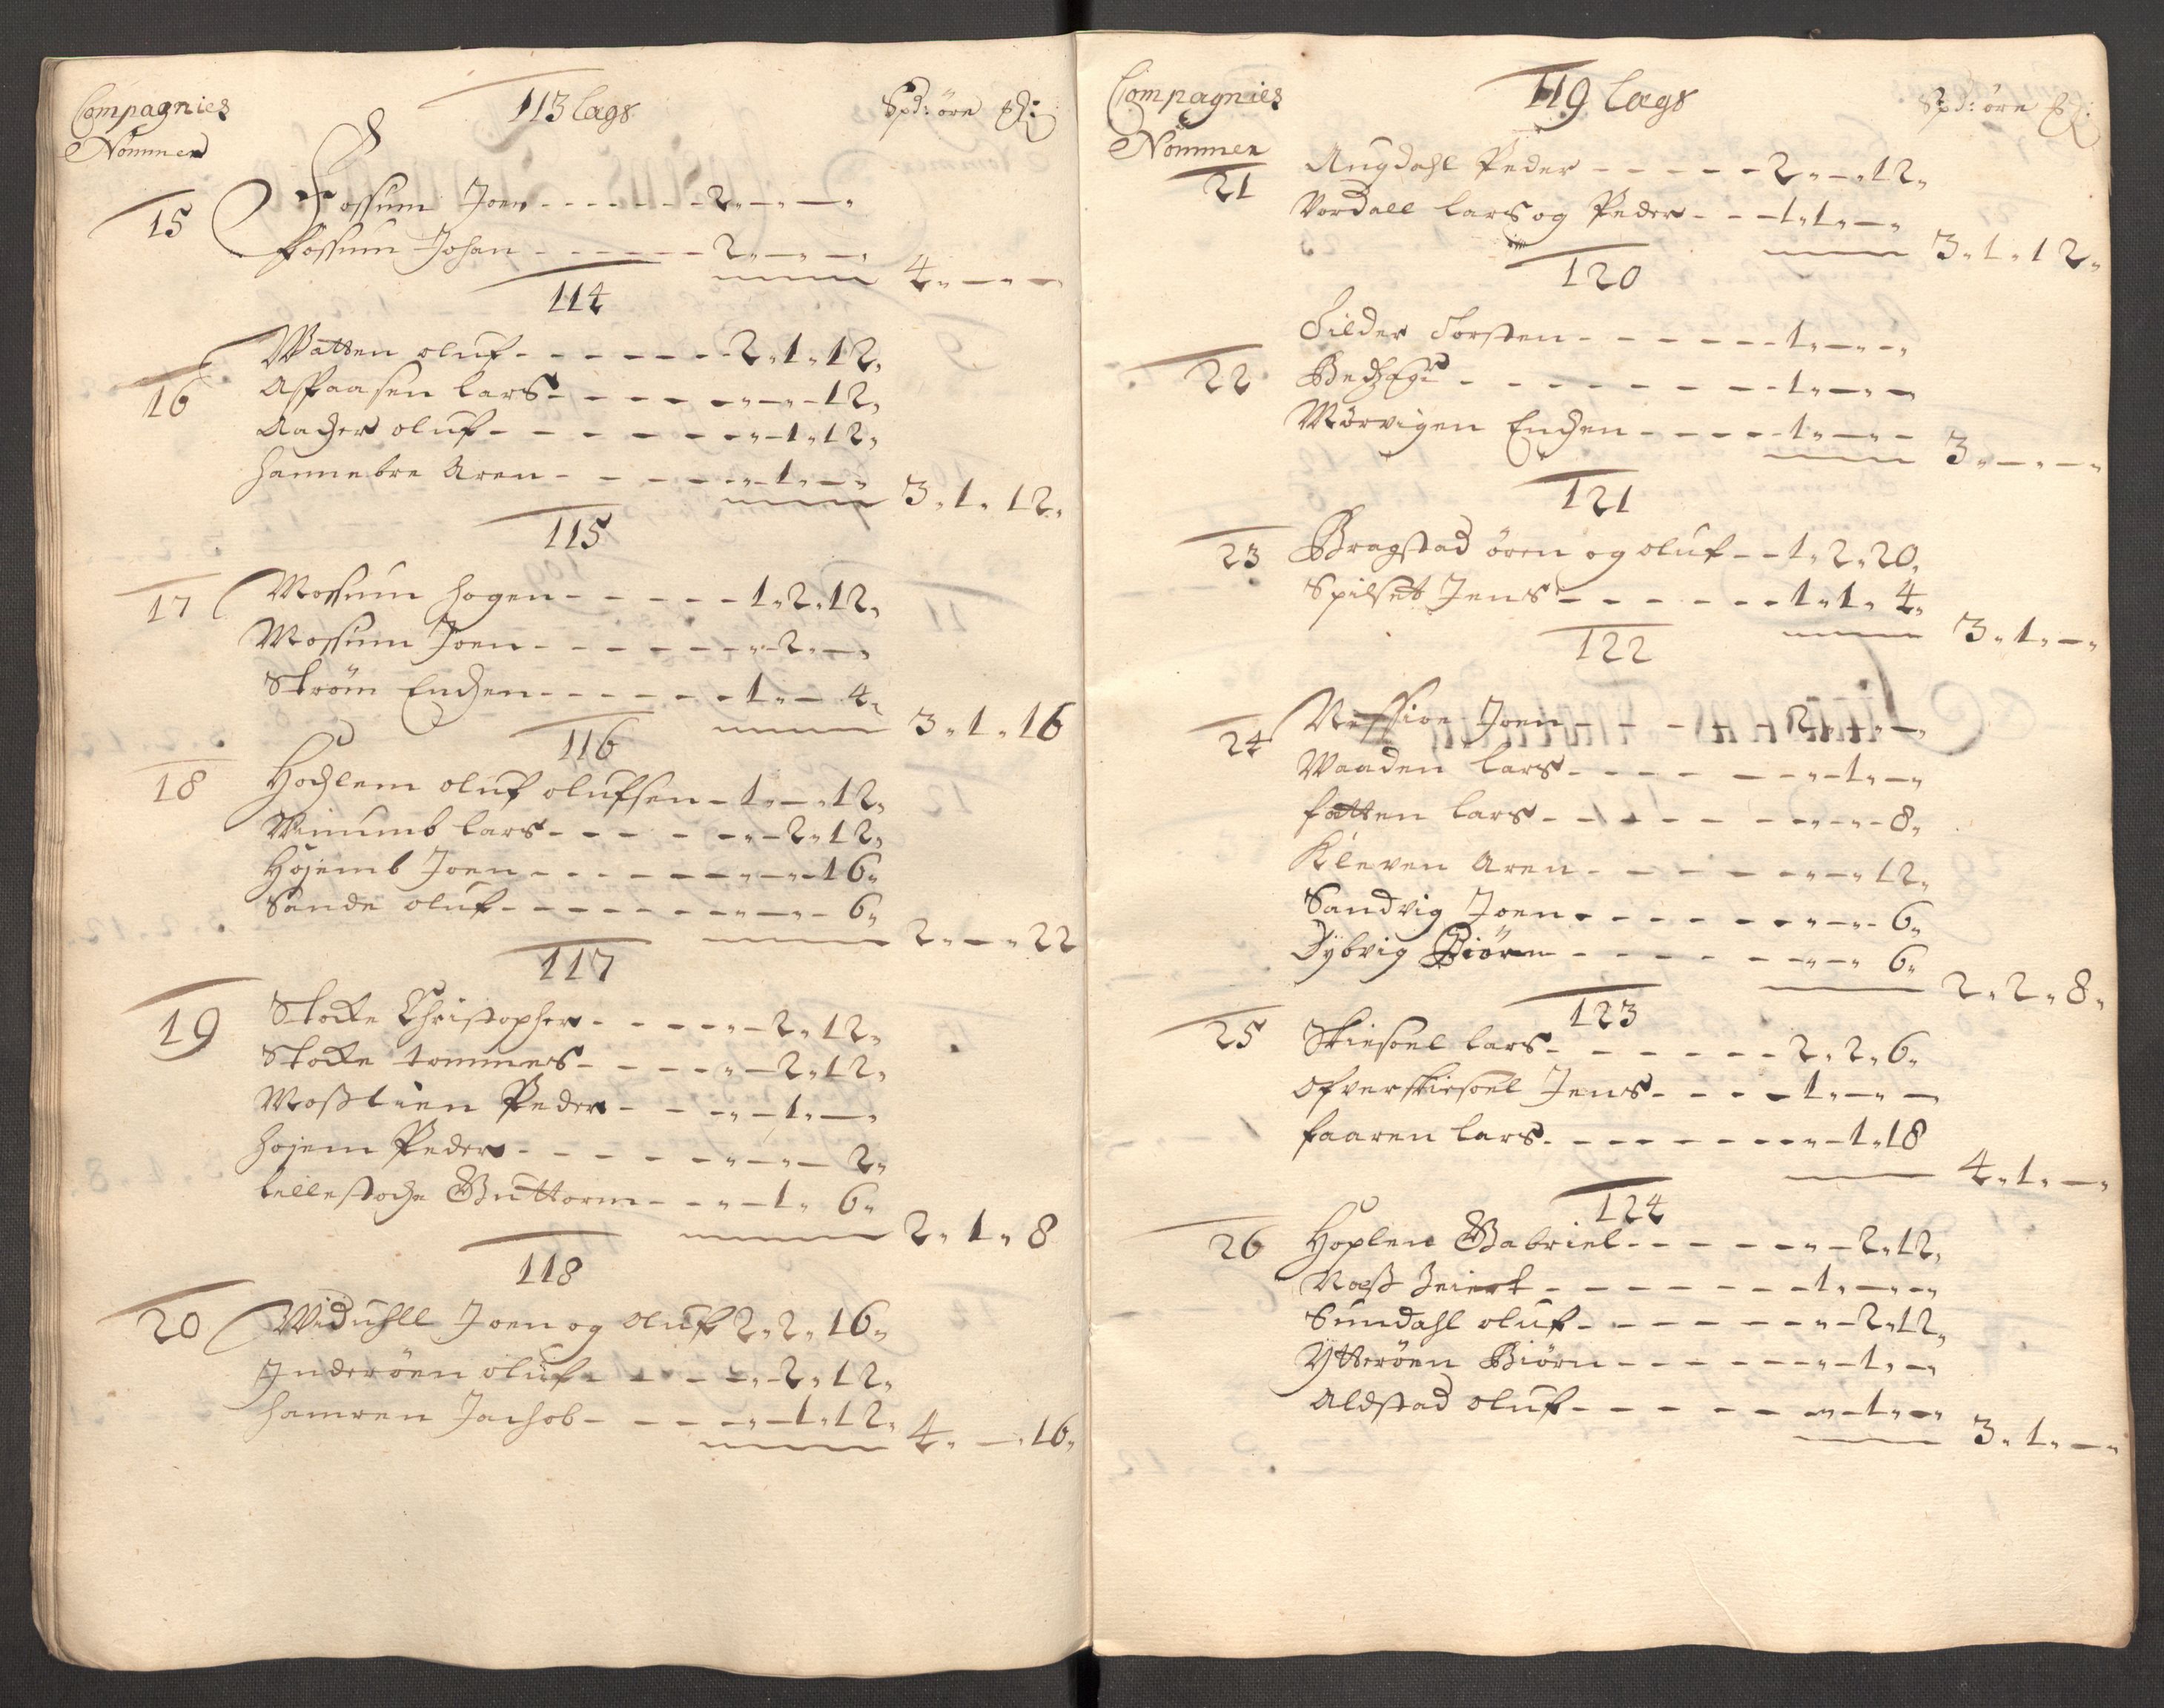 Compagnies
Nommer
113 lags
Spd: øre
15
Fossum Joen - - - - - - 2 " — " — "
Fossum Johan - - - - - - 2 " — " — "
4 " — " —
114
16
Watten oluf - - - - - - 2 " 1 " 12 "
Aspaasen lars - - - - - " — " 12 "
Aacher oluf - - - - - - " 1 " 12 "
hannebre Aren - - - - - " 1 " — "
3 " 1 " 12 "
115
17
Mossum hogen - - - - - 1 " 2 " 12 "
Mossum Joen - - - - - - " 2 " — "
Strøm Enchen - - - - - - 1 " — 4 "
3 " 1 " 16
116
18
Hochlem oluf olufsen - 1 " — " 12 "
Winumb lars - - - - - " — 2 " 12 "
Højemb Joen - - - - - - " — " 16 "
Sande oluf - - - - - - " — " 6 "
2 " — " 22
117
19
Stocke Christopher - - - - " — 2 " 12 "
Stocke tommes - - - - " — 2 " 12 "
Moßlien Peder - - - " — 1 " — "
hojem Peder - - - - - " — " — 2 "
lellestoche Guttorm - - " — 1 " 6 "
2 " 1 " 8
118
20
Widuhll Joen og oluf 2 " 2 " 16 "
Inderøen oluf - - - - " 2 " 12 "
hamren Jachob - - - - " 1 " 12 "
4 " — " 16 "
Compagnies
Nommer
119 lags
Spd: øre
21
Augdahl Peder - - - - - 2 " — " 12 "
Vordall lars og Peder - - 1 " 1 " — "
3 " 1 " 12 "
120
22
Silder Torsten - - - - - - 1 " — " — "
- - - - - - - - 1 " — " —
Mørvigen Enchen - - - - 1 " — " —
3 " — " — "
121
23
Bragstad ören og oluf - - 1 " 2 " 20 "
Spilset Jens - - - - - - 1 " 1 " 4 "
3 " 1 " — "
122
24
Joen - - - - - 2 " — " — "
Waaden lars - - - - - - " 1 " — "
fatten lars - - - - - - " — " 8 "
Kleven Aren - - - - - - " — " 12 "
Sandvig Joen - - - - - " — " 6 "
Dybvig Biørn - - - - - " — " 6 "
2 " 2 " 8 "
123
25
Skiesoel lars - - - - - - 2 " 2 " 6 "
ofverskiesoel Jens - - - - 1 " — " —
faaren lars - - - - - - " — 1 " 18
4 " 1 " — "
124
26
Hoplen Gabriel - - - - - " — 2 " 12 "
Næß - - - - - - 1 " — " — "
Sundahl oluf - - - - - " — 2 " 12 "
Ytterøen Biørn - - - - - " — 1 " — "
Aldstad oluf - - - - - " — 1 " — "
3 " 1 " — "